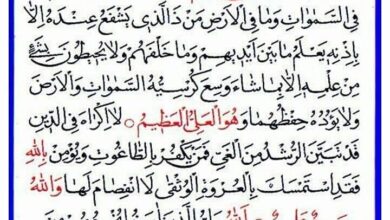 فِي السَّمٰوَاتِ وَمَا فِي الْاَرْضِ مَنْ ذَا الَّذٖي يَشْفَعُ عِنْدَهُٓ اِلَّا
بِاِذْنِهٖ يَعْلَمُ مَا بَيْنَ اَيْدٖيهِمْ وَمَا خَلْفَهُمْ وَلَا يُحٖيطُونَ بِشَيْءٍ
مِنْ عِلْمِهٖٓ اِلَّا بِمَا شَاءَ وَسِعَ كُرْسِيُّهُ السَّمٰوَاتِ وَالْاَرْضَ
وَلَا يَؤُدُهُ حِفْظُهُمَا وَهُوَ الْعَلِيُّ الْعَظٖيمُ ۝ لَٓا اِكْرَاهَ فِي الدّٖينِ
قَدْ تَبَيَّنَ الرُّشْدُ مِنَ الْغَيِّ فَمَنْ يَكْفُرْ بِالطَّاغُوتِ وَيُؤْمِنْ بِاللّٰهِ
فَقَدِ اسْتَمْسَكَ بِالْعُرْوَةِ الْوُثْقٰى لَا انْفِصَامَ لَهَا وَاللّٰهُ